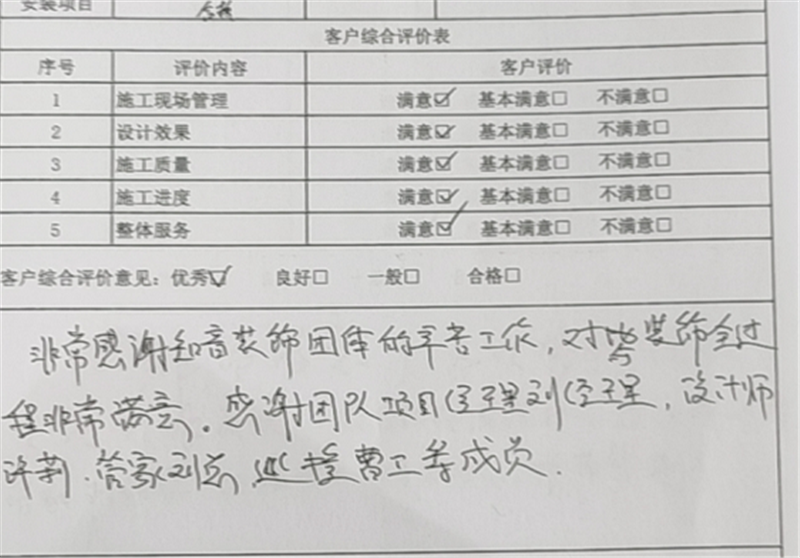 安装项目 合格
客户综合评价表
序号 评价内容 客户评价
1 施工现场管理 满意☑ 基本满意☐ 不满意☐
2 设计效果 满意☑ 基本满意☐ 不满意☐
3 施工质量 满意☑ 基本满意☐ 不满意☐
4 施工进度 满意☑ 基本满意☐ 不满意☐
5 整体服务 满意☑ 基本满意☐ 不满意☐
客户综合评价意见：优秀☑ 良好☐ 一般☐ 合格☐
非常感谢知音装饰团体的辛苦工作，对装饰全过
程非常满意。感谢团队项目经理刘经理，设计师
许莉．管家刘总，巡检曹工等成员．